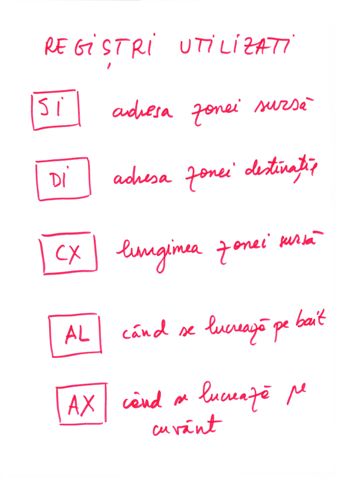 REGIȘTRI UTILIZATI
SI adresa zonei sursă
DI adresa zonei destinație
CX lungimea zonei sursă
AL când se lucrează pe bait
AX când se lucrează pe
cuvânt